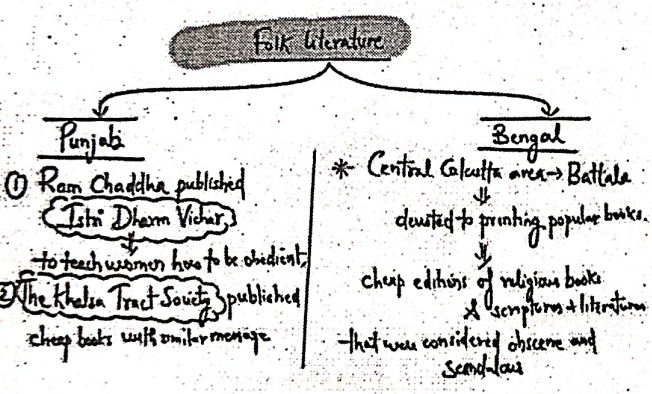 Folk literature
Punjab
① Ram Chaddha published
Istri Dharm Vichar
to teach women how to be obedient.
② The Khalsa Tract Society published
cheap books with similar message
Bengal
* Central Calcutta area → Battala
⇓
devoted to printing popular books.
⇓
cheap editions of religious books
& scriptures + literature
that were considered obscene and
scandalous